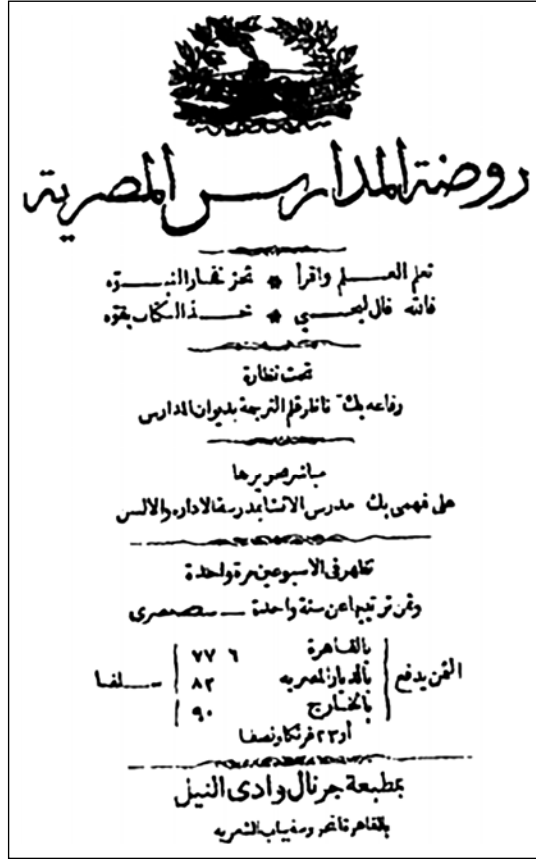 روضة المدارس المصرية
تعلم العلم واقرأ * تحز فخار النبوه
فالله قال ليحيى * خذ الكتاب بقوه
تحت نظارة
رفاعه بك ناظر قلم الترجمة بديوان المدارس
مباشر تحويرها
على فهمى بك مدرس الانشا بمدرسة الاداره والالسن
تظهر فى الاسبوعين مرة واحدة
وثمن ترتيبها عن سنة واحدة مصرى
الثمن يدفع سلفا
بالقاهرة ٦ ٧٧
بالديار المصريه ٨٢
بالخارج ٩٠
أو ٢٣ فرنكا ونصفا
بمطبعة جرنال وادى النيل
بالقاهرة بباب الشعريه